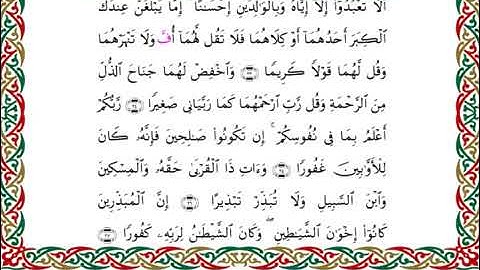 أَلَّا تَعۡبُدُوٓاْ إِلَّآ إِيَّاهُ وَبِٱلۡوَٰلِدَيۡنِ إِحۡسَٰنًاۚ إِمَّا يَبۡلُغَنَّ عِندَكَ
ٱلۡكِبَرَ أَحَدُهُمَآ أَوۡ كِلَاهُمَا فَلَا تَقُل لَّهُمَآ أُفّٖ وَلَا تَنۡهَرۡهُمَا
وَقُل لَّهُمَا قَوۡلٗا كَرِيمٗا ٢٣ وَٱخۡفِضۡ لَهُمَا جَنَاحَ ٱلذُّلِّ
مِنَ ٱلرَّحۡمَةِ وَقُل رَّبِّ ٱرۡحَمۡهُمَا كَمَا رَبَّيَانِي صَغِيرٗا ٢٤ رَّبُّكُمۡ
أَعۡلَمُ بِمَا فِي نُفُوسِكُمۡۚ إِن تَكُونُواْ صَٰلِحِينَ فَإِنَّهُۥ كَانَ
لِلۡأَوَّٰبِينَ غَفُورٗا ٢٥ وَءَاتِ ذَا ٱلۡقُرۡبَىٰ حَقَّهُۥ وَٱلۡمِسۡكِينَ
وَٱبۡنَ ٱلسَّبِيلِ وَلَا تُبَذِّرۡ تَبۡذِيرًا ٢٦ إِنَّ ٱلۡمُبَذِّرِينَ
كَانُوٓاْ إِخۡوَٰنَ ٱلشَّيَٰطِينِۖ وَكَانَ ٱلشَّيۡطَٰنُ لِرَبِّهِۦ كَفُورٗا ٢٧